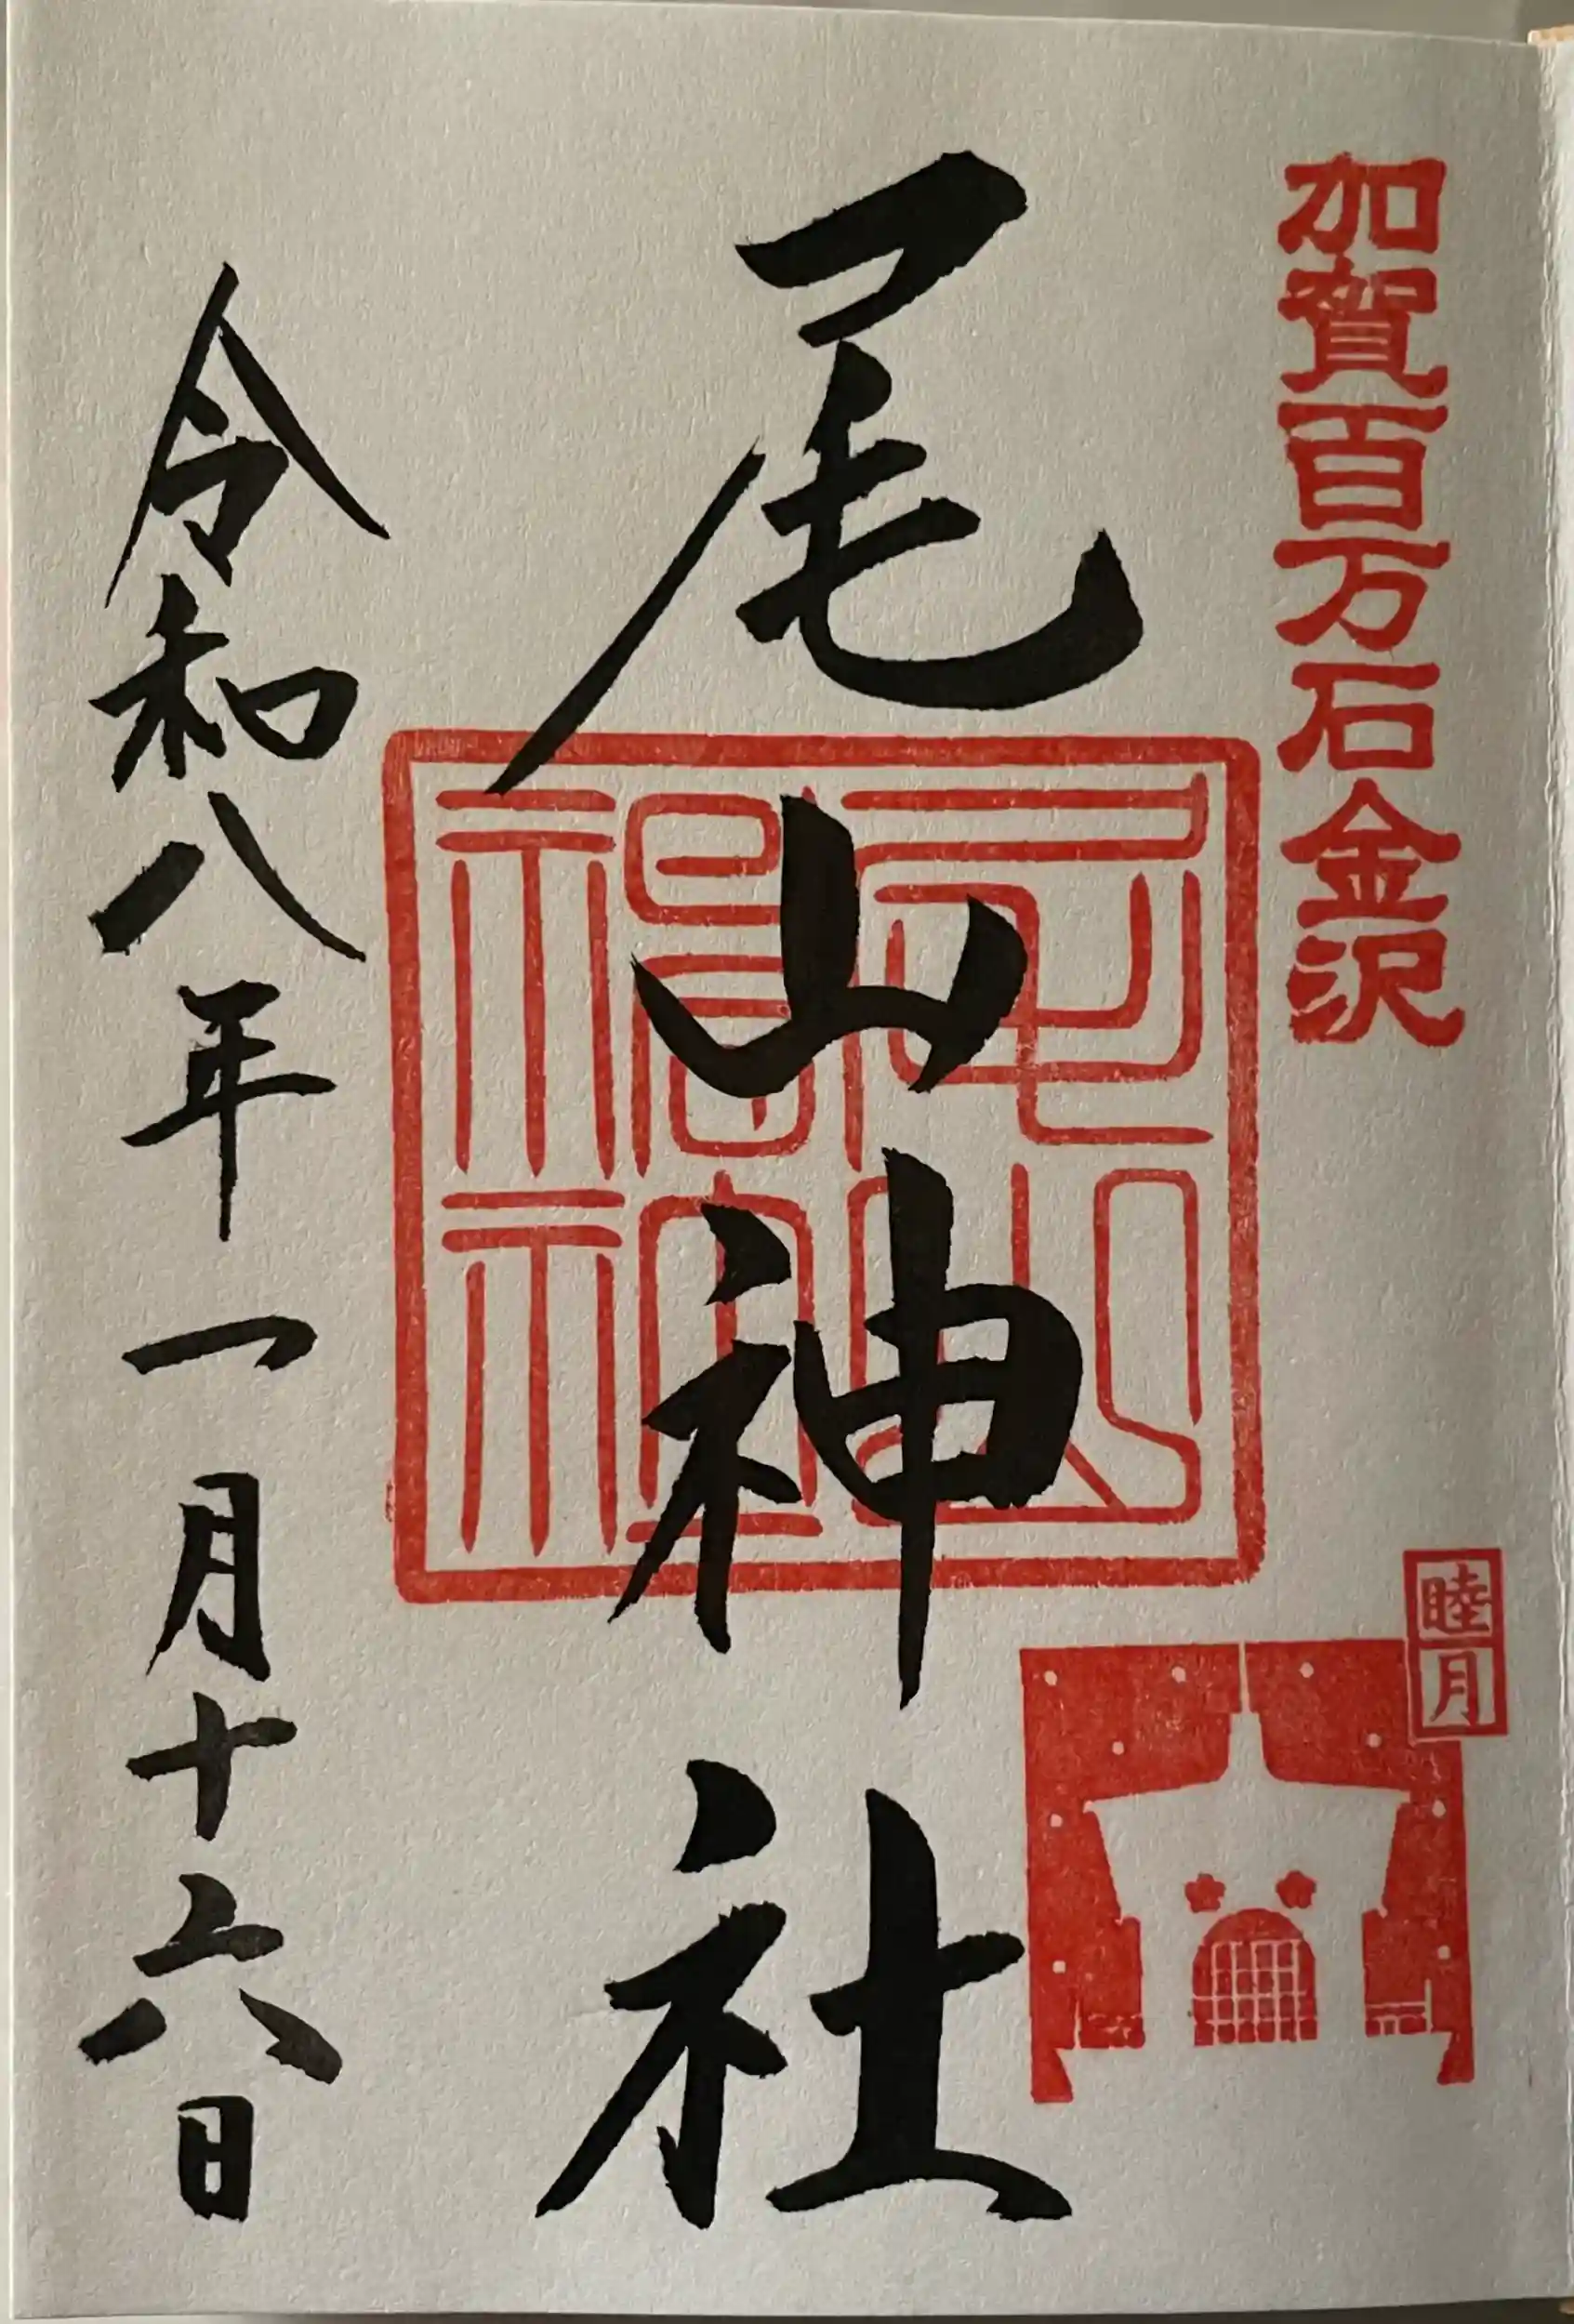 加賀百万石金沢
睦月
尾山神社
尾山神社
令和八年一月十六日